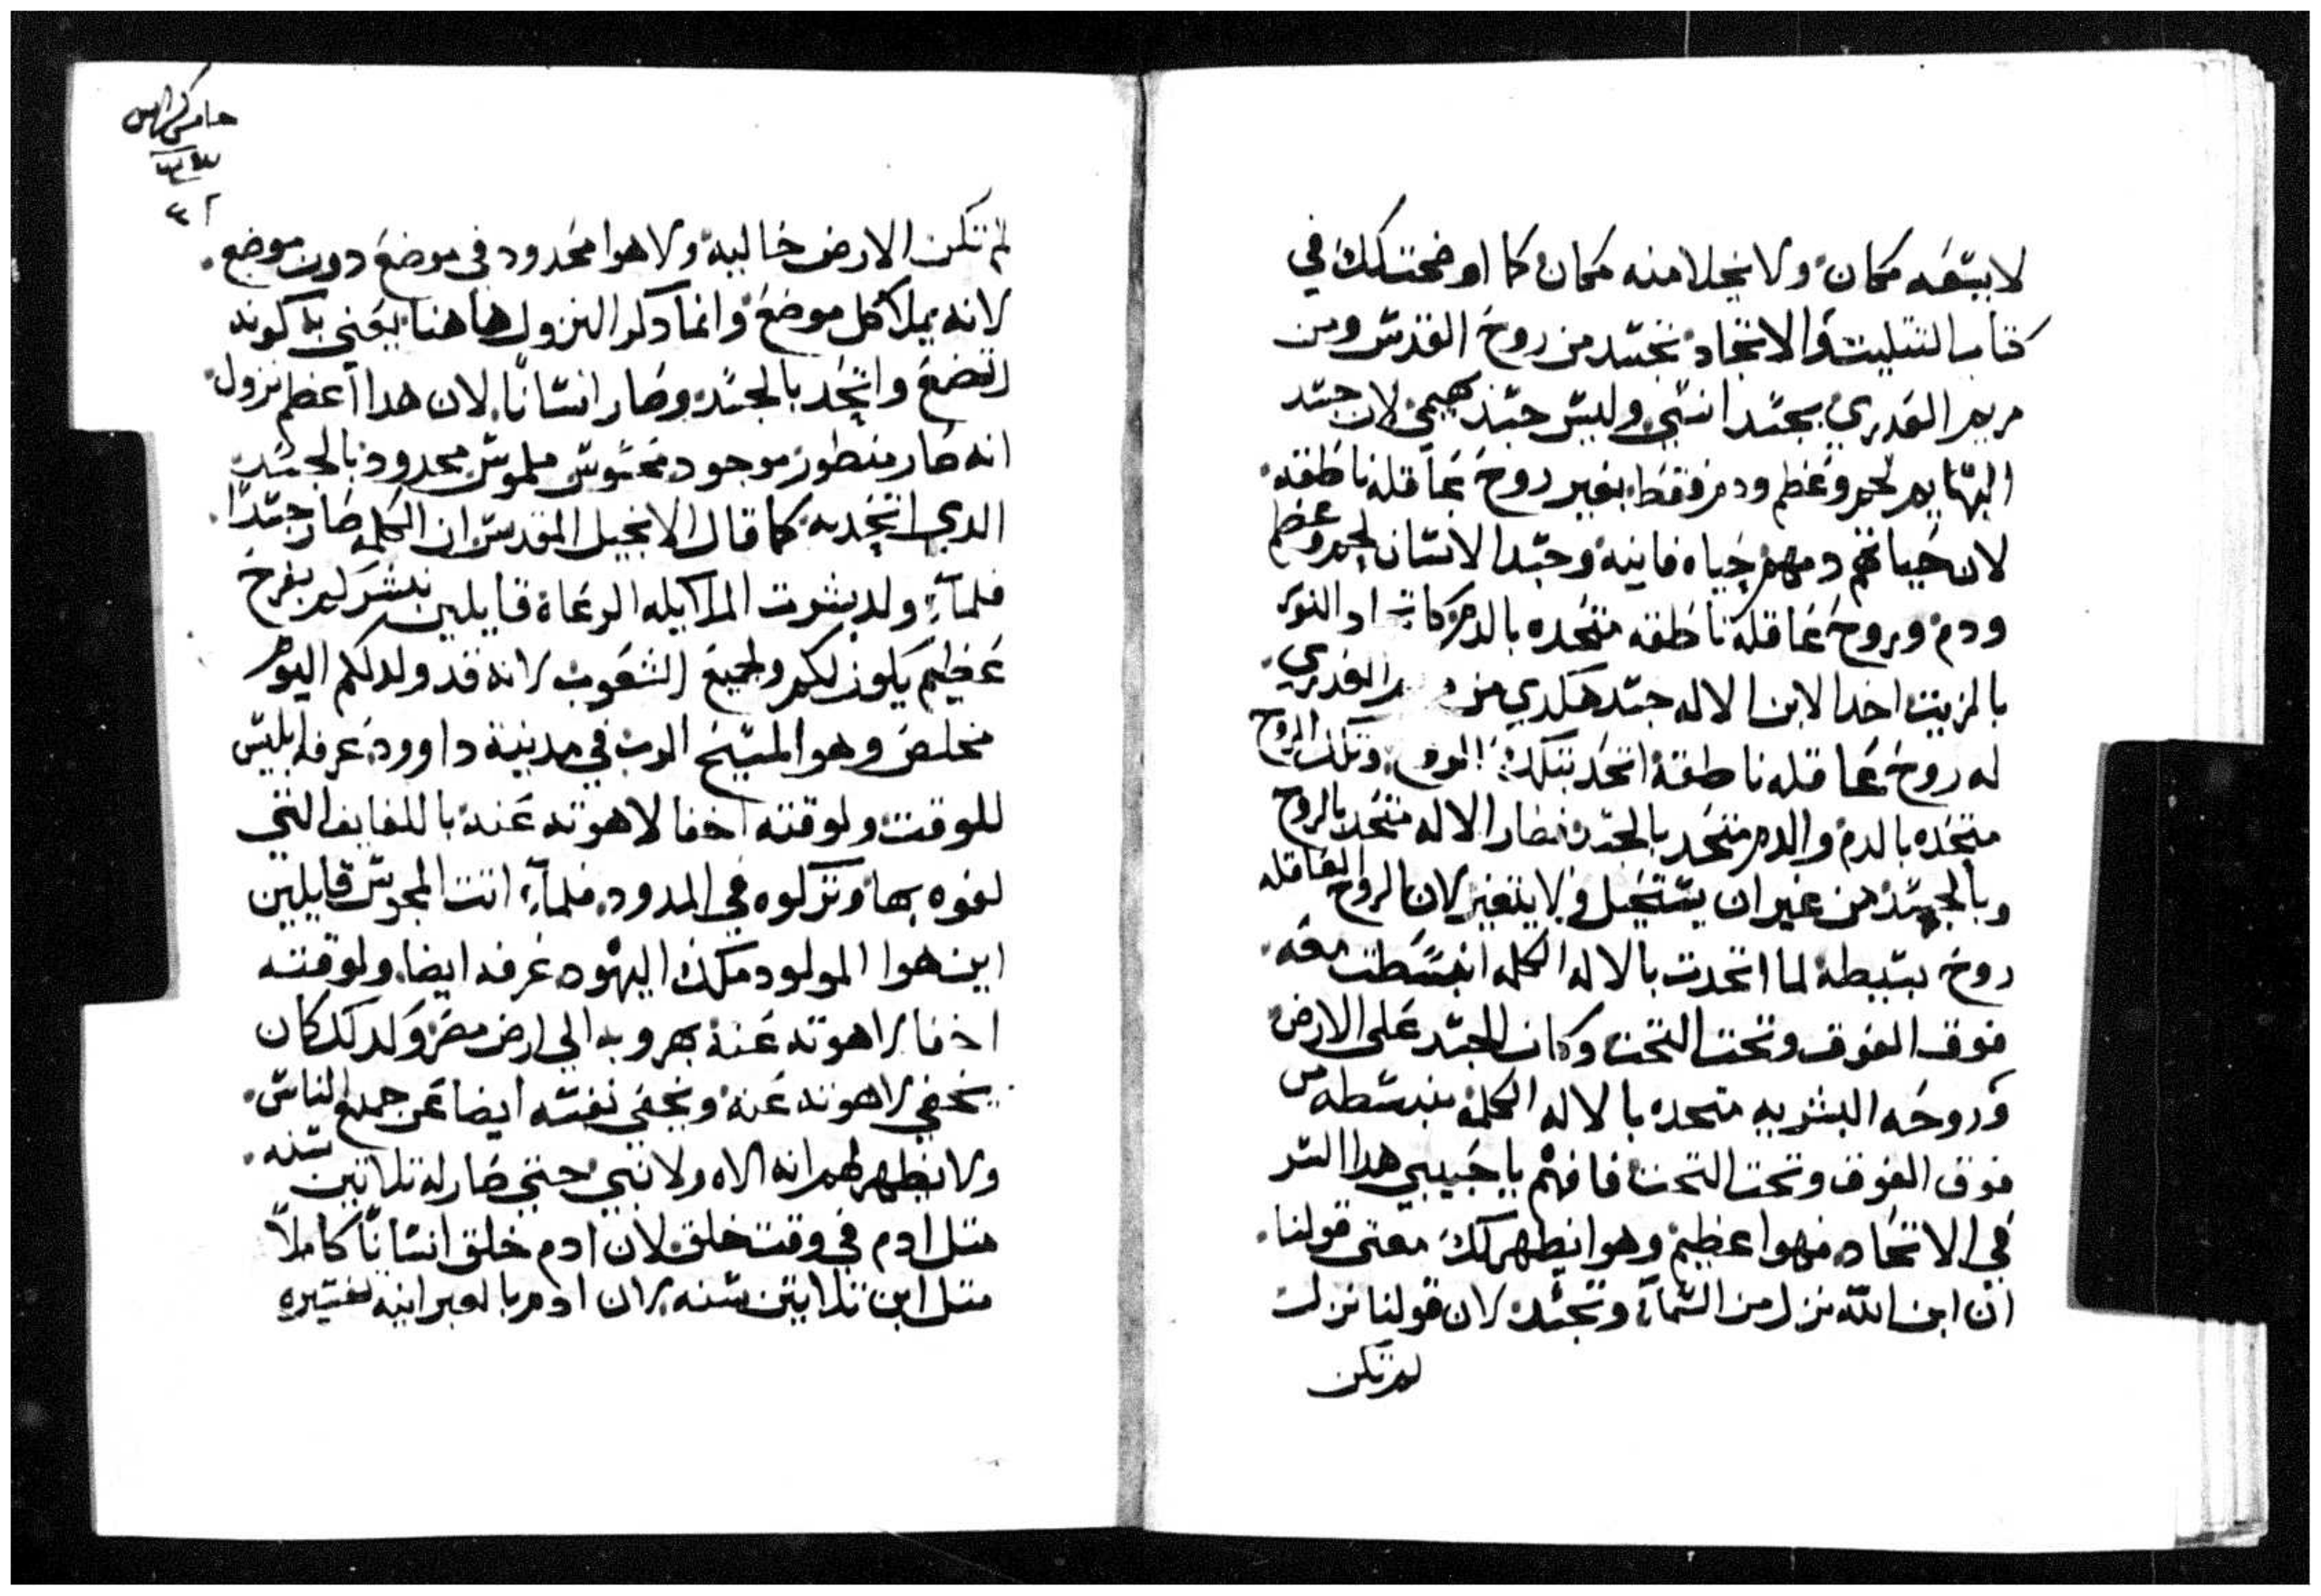 لا يسعه مكان ولا يخلا منه مكان كما اوضحت لك في
كتاب التتليت والاتحاد تجسد من روح القدس ومن
مريم العدري بجسد انسي وليس جسد بهيمي لان جسد
البهايم لحم وعظم ودم فقط بغير روح عاقله ناطقه
لان حياتهم دمهم حياه فانيه وجسد الانسان لحم وعظم
ودم وبروح عاقله ناطقه متحده بالدم كاتحاد النور
بالزيت اخدا الابن الاله جسد هكدي من مريم العدري
له روح عاقله ناطقة اتحد بتلك الروح وتلك الروح
متحده بالدم والدم متحد بالجسد فصار الاله متحد بالروح
وبالجسد من غير ان يستحيل ولا يتغير لان الروح العاقله
روح بسيطه لما اتحدت بالاله الكلمه انبسطت معه
فوق الفوق وتحت التحت وكان الجسد على الارض
وروحه البشريه متحده بالاله الكلمه منبسطه من
فوق الفوق وتحت التحت فافهم يا حبيبي هدا السر
في الاتحاد فهوا عظيم وهوا يظهر لك معنى قولنا
ان ابن الله نزل من السمآء وتجسد لان قولنا نزل
لم تكن
خامس كراس
لم تكن الارض خاليه ولا هوا محدود في موضع دون موضع
لانه يملا كل موضع وانما دكر النزول هاهنا يعني به كونه
اتضع واتحد بالجسد وصار انسانًا لان هدا اعظم نزول
انه صار منظور موجود محسوس ملموس محدود بالجسد
الدي اتحد به كما قال الانجيل المقدس ان الكلمه صار جسدًا
فلمآء ولد بشرت الملايكه الرعاة قايلين نبشركم بفرح
عظيم يكون لكم ولجميع الشعوب لانه قد ولد لكم اليوم
مخلص وهو المسيح الرب في مدينة داوود عرفه ابليس
للوقت ولوقته اخفا لاهوته عنه باللفايف التي
لفوه بها وتركوه في المدود فلمآء اتت المجوس قايلين
اين هوا المولود ملك اليهود عرفه ايضا ولوقته
اخفا لاهوته عنه بهروبه الي ارض مصر ولدلك كان
يخفي لاهوته عنه ويخفي نفسه ايضا عن جميع الناس
ولا يظهر لهم انه الاه ولا نبي حتي صار له تلاتين سنه
متل ادم في وقت خلق لان ادم خلق انسانًا كاملاً
متل ابن تلاتين سنه لان ادم بالعبرانيه تفسيره